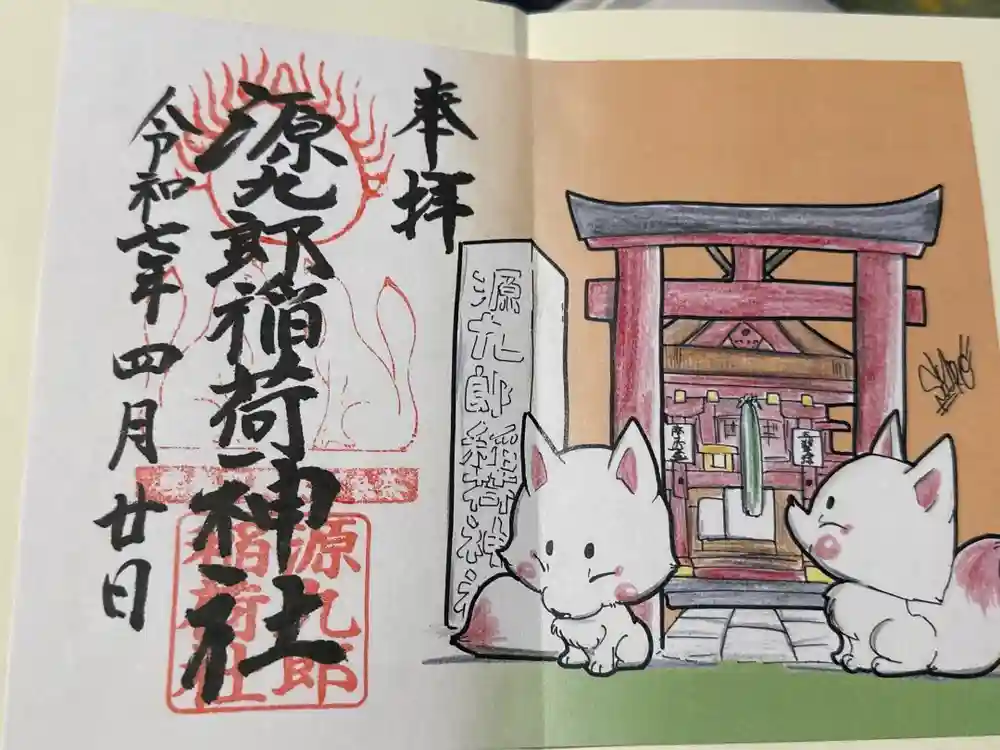 奉拝
源九郎稲荷神社
令和七年四月廿日
源九郎
稲荷社
源九郎稲荷神